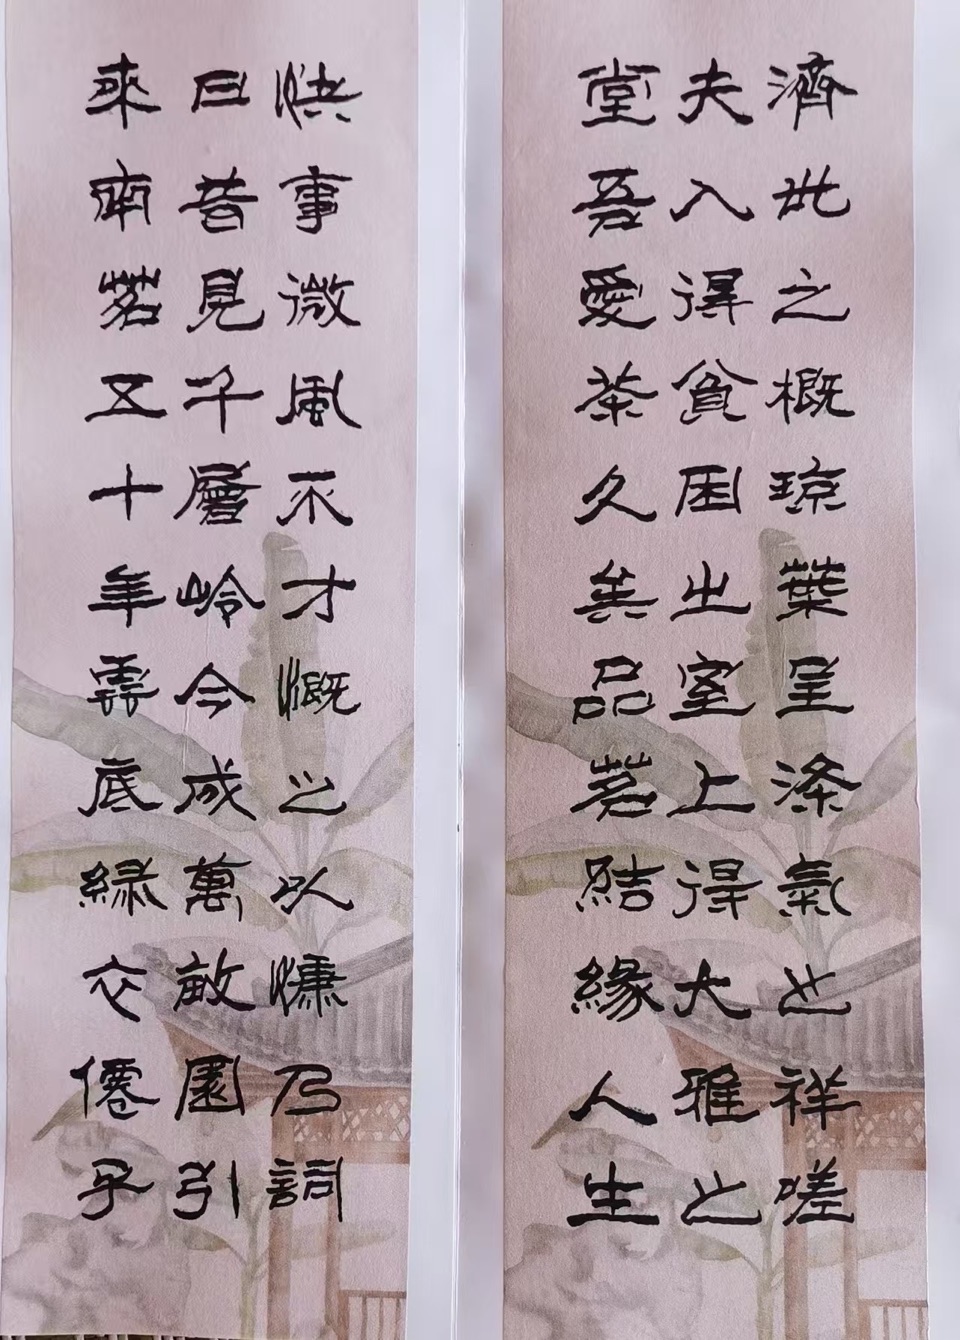 濟此之概琼葉呈滌氣也祥嗟
夫入得貧困之室上得大雅之
堂吾愛茶久矣品茗結緣人生
快事微風不才慨之以慷乃詞
曰昔見千層岭今成萬畝園引
來南茗五十年雲底緑衣僊乎